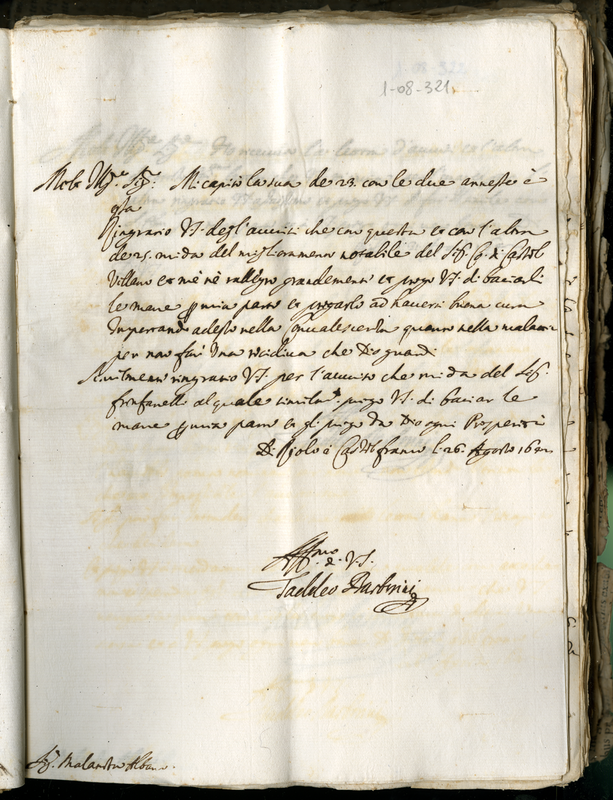 1-08-321
Molto Ill.re Sig.re Mi capitò la sua de 23. con le due annesse à
essa
Ringratio V.S. degl'avvisi che con questa et con l'altra
de 25. mi da del miglioramento notabile del Sig. Co. di Castel
Villano et me ne rallegro grandemente et prego V.S. di baciarli
le mane per mia parte et pregarlo ad haversi buona cura
Importando adesso nella Convalescentia quanto nella malatia
per non far una recidiva che Dio guardi
Similmente ringratio V.S. per l'avviso che mi da del Sig.
al quale similm.te prego V.S. di baciar le
mane per mia parte et gli prego da Dio ogni Prosperità
Di à Castel franco li 26. Agosto 16
Aff.mo di V.S.
Taddeo Barberini
Sig.